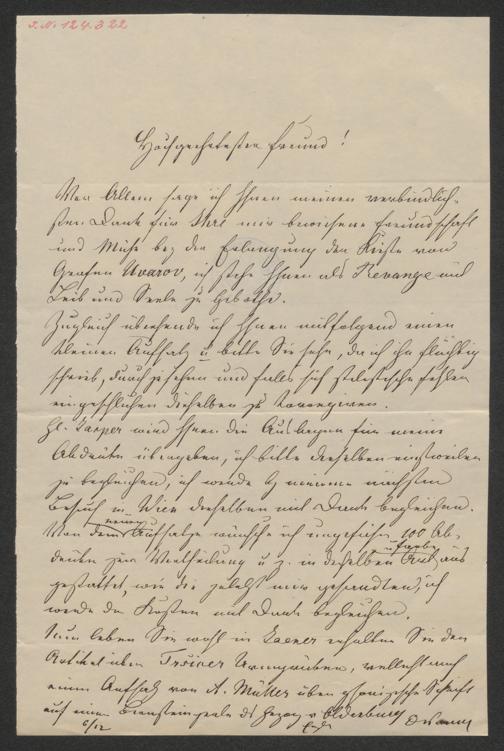 I.N. 124.322
Hochgeehrtester Freund!
Vor Allem sage ich Ihnen meinen verbindlich-
sten Dank für Ihre mir bewiesene Freundschaft
und Mühe bey der Erlangung der Kiste von
Grafen Uvarov, ich stehe Ihnen als Revange mit
Leib und Seele zu Gebothe.
Zugleich übersende ich Ihnen mitfolgend einen
kleinen Aufsatz u bitte Sie sehr, da ich ihn flüchtig
schrieb, durchzusehen und falls sich stylistische Fehler
eingeschlichen dieselben zu korrigiren.
H. Kasper wird Ihnen die Auslagen für meine
Abdrücke übergeben, ich bitte dieselben einstweilen
zu begleichen, ich werde bey meinem nächsten
Besuch in Wien dieselben mit Dank begleichen.
Von dem neuen Aufsatze wünsche ich ungefähr 100 Ab-
drücke zur Vertheilung u z. in derselben Art aus
gestattet, wie die zuletzt mir gesandten, ich
werde die Kosten mit Dank begleichen.
Nun leben Sie wohl, im Jaener erhalten Sie den
Artikel über Urnengräber, vielleicht auch
einen Aufsatz von A. Müller über phönizische Schrift
auf einer Bernsteinperle des Herzog v Oldenburg
6/12